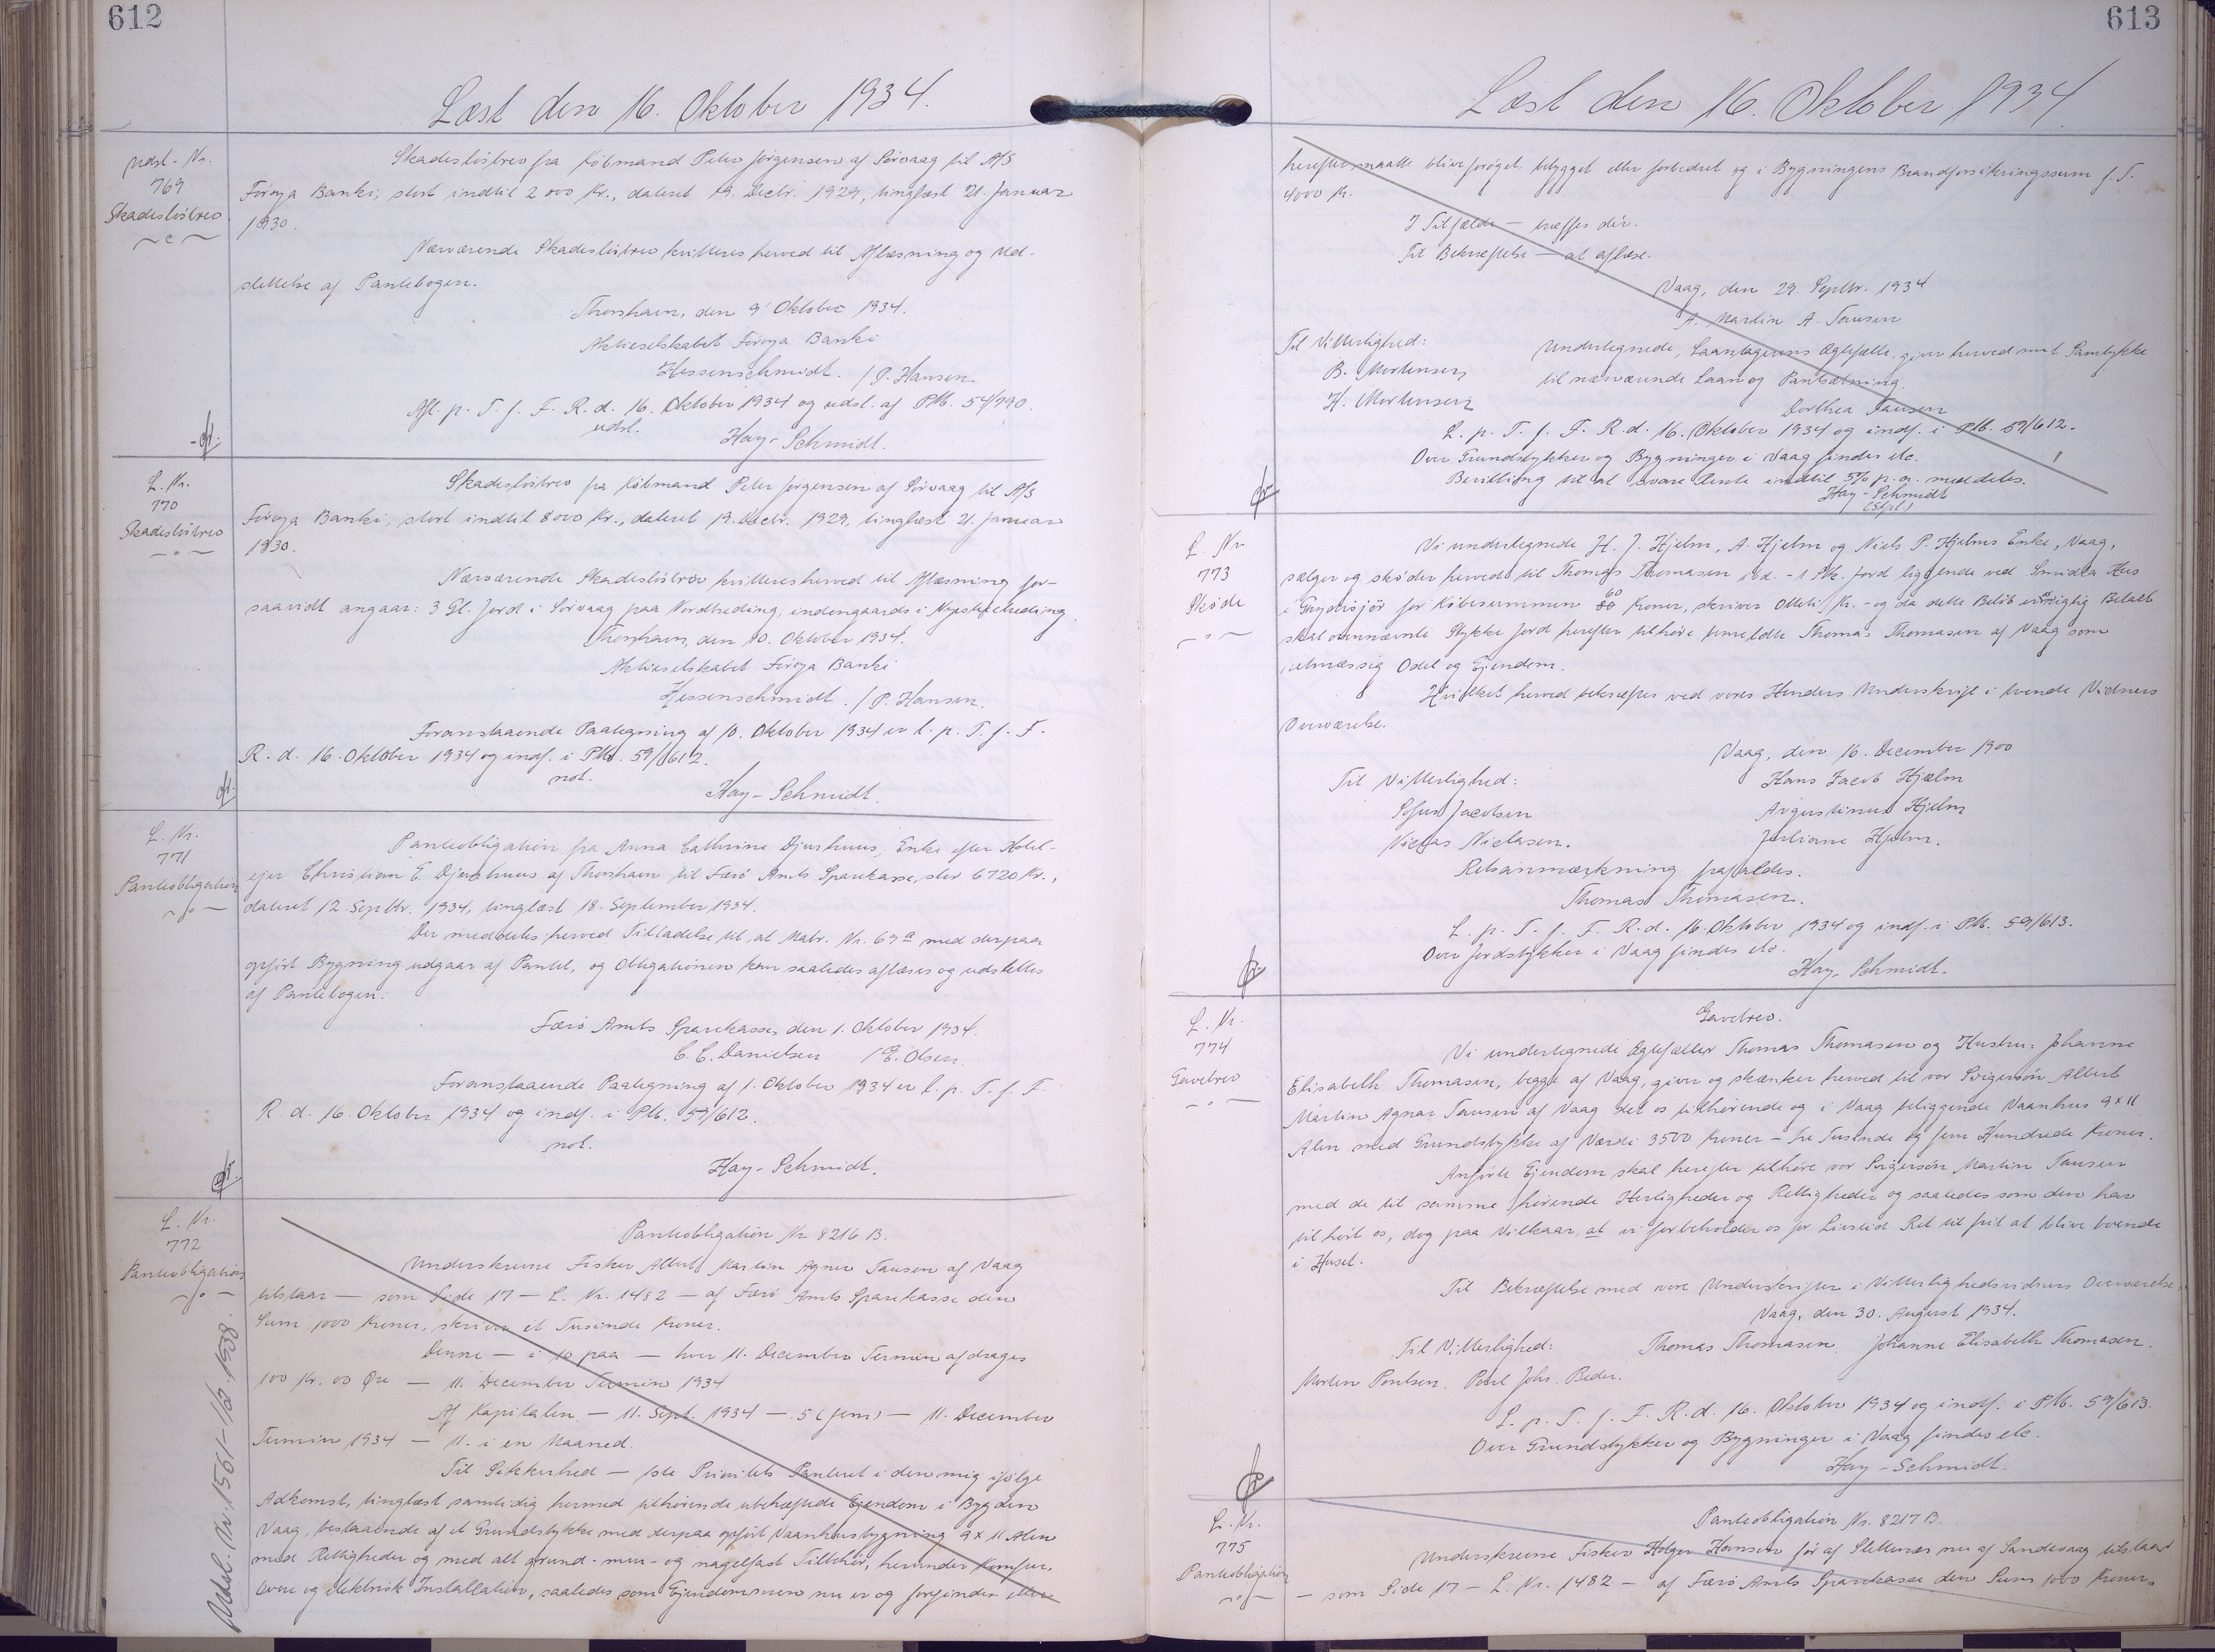 612
Læst den 16. Oktober 1934.
Udsl. Nr.
769
Skadesløsbrev
Skadesløsbrev fra Købmand Peter Jørgensen af Sørvaag til A/S
Føroya Banki, stort indtil 2000 Kr., dateret 19. Decbr. 1929, tinglæst 21. Januar
1930.
Nærværende Skadesløsbrev kvitteres herved til Aflæsning og Ud-
slettelse af Pantebogen.
Thorshavn, den 9' Oktober 1934.
Aktieselskabet Føroya Banki
Hessenschmidt. / P. Hansen.
Afl. p. T. f. F. R. d. 16. Oktober 1934 og udsl. af Ptb. 54/790.
udsl.
Hay-Schmidt.
L. Nr.
770
Skadesløsbrev
Skadesløsbrev fra Købmand Peter Jørgensen af Sørvaag til A/S
Føroya Banki, stort indtil 8000 Kr., dateret 19. Decbr. 1929, tinglæst 21. Januar
1930.
Nærværende Skadesløsbrev kvitteres herved til Aflæsning for-
saavidt angaar: 3 Gl. Jord i Sørvaag paa Nordheding, indengaards i
Thorshavn, den 10. Oktober 1934.
Aktieselskabet Føroya Banki
Hessenschmidt. / P. Hansen.
Foranstaaende Paategning af 10. Oktober 1934 er l. p. T. f. F.
R. d. 16. Oktober 1934 og indf. i Ptb. 59/612.
not.
Hay-Schmidt.
L. Nr.
771
Panteobligation
Panteobligation fra Anna Cathrine Djurhuus, Enke efter Hotel-
ejer Christian E. Djurhuus af Thorshavn til Færø Amts Sparekasse, stor 6720 Kr.,
dateret 12. Septbr. 1934, tinglæst 18. September 1934.
Der meddeles herved Tilladelse til, at Matr. Nr. 69a med derpaa
opført Bygning udgaar af Pantet, og Obligationen kan saaledes aflæses og udslettes
af Pantebogen.
Færø Amts Sparekasse, den 1. Oktober 1934.
C. C. Danielsen / E. Olsen.
Foranstaaende Paategning af 1. Oktober 1934 er l. p. T. f. F.
R. d. 16. Oktober 1934 og indf. i Ptb. 59/612.
not.
Hay-Schmidt.
L. Nr.
772
Panteobligation
Udsl. Nr. 1561-1/2.1938.
Panteobligation Nr. 8216 B.
Underskrevne Fisker Albert Martin Agnar Tausen af Vaag
tilstaar — som Side 17 — L. Nr. 1482 — af Færø Amts Sparekasse den
Sum 1000 Kroner, skriver et Tusinde Kroner.
Denne — i 10 paa — hver 11. December Termin afdrages
100 Kr. 00 Øre — 11. December Termin 1934
Af Kapitalen — 11. Sept. 1934 — 5 (fem) — 11. December
Termin 1934 — 11. i en Maaned.
Til Sikkerhed — 1ste Prioritets Panteret i den mig ifølge
Adkomst, tinglæst samtidig hermed tilhørende ubehæftede Ejendom i Bygden
Vaag, bestaaende af et Grundstykke med derpaa opført Vaanhusbygning 9 x 11 Alen
med Rettigheder og med alt grund- mur- og nagelfast Tilbehør, herunder Komfur,
Ovne og elektrisk Installation, saaledes som Ejendommen nu er og forefindes eller
613
Læst den 16. Oktober 1934
herefter maatte blive forøget, tilbygget eller forbedret og i Bygningens Brandforsikringssum f. T.
4000 Kr.
I Tilfælde — træffes dér.
Til Bekræftelse — at aflæse.
Vaag, den 29. Septbr. 1934
A. Martin A. Tausen
Til Vitterlighed:
B. Mortensen
H. Mortensen
Undertegnede, Laantagerens Ægtefælle, giver herved mit Samtykke
til nærværende Laan og Pantsætning.
Dorthea Tausen
L. p. T. f. F. R. d. 16. Oktober 1934 og indf. i Ptb. 59/612.
Over Grundstykker og Bygninger i Vaag findes etc.
Bevilling til at svare Rente indtil 5% p. a. meddeles.
Hay-Schmidt
L. Nr
773
Skøde
Vi undertegnede H. J. Hjelm, A. Hjelm og Niels P. Hjelms Enke, Vaag,
sælger og skøder herved til Thomas Thomasen ibd. - 1 Stk. Jord liggende ved Smidla Hus
i for Købesummen 80 Kroner, skriver Otteti Kr. - og da dette Beløb er rigtig Betalt
skal ovennævnte Stykke Jord herefter tilhøre bemeldte Thomas Thomasen af Vaag som
retmæssig Odel og Ejendom.
Hvilket herved bekræftes ved vores Henders Underskrift i tvende Vidners
Overværelse.
Vaag, den 16. December 1900
Til Vitterlighed:
Hans Jacob Hjælm
Sofus Jacobsen
Augustinus Hjelm
Niclas Niclasen.
Juliane Hjelm.
Retsanmærkning frafaldes.
Thomas Thomasen.
L. p. T. f. F. R. d. 16. Oktober 1934 og indf. i Ptb. 59/613.
Over Jordstykker i Vaag findes etc.
Hay-Schmidt.
L. Nr.
774
Gavebrev
Gavebrev.
Vi undertegnede Ægtefæller Thomas Thomasen og Hustru: Johanne
Elisabeth Thomasen, begge af Vaag, giver og skænker herved til vor Svigersøn Albert
Martin Agnar Tausen af Vaag det os tilhørende og i Vaag beliggende Vaanhus 9 x 11
Alen med Grundstykke af Værdi 3500 Kroner - tre Tusinde og fem Hundrede Kroner.
Anførte Ejendom skal herefter tilhøre vor Svigersøn Martin Tausen
med de til samme hørende Herligheder og Rettigheder og saaledes som den har
tilhørt os, dog paa Vilkaar, at vi forbeholder os for Livstid Ret til frit at blive boende
i Huset.
Til Bekræftelse med vore Underskrifter i Vitterlighedsvidners Overværelse.
Vaag, den 30. August 1934.
Til Vitterlighed: Thomas Thomasen Johanne Elisabeth Thomasen.
Morten Poulsen. Poul Johs. Beder.
L. p. T. f. F. R. d. 16. Oktober 1934 og indf. i Ptb. 59/613.
Over Grundstykker og Bygninger i Vaag findes etc.
Hay-Schmidt.
L. Nr.
775
Panteobligation
Panteobligation Nr. 8217 B.
Underskrevne Fisker Holger Hansen før af Slettenæs nu af Sandevaag tilstaar
— som Side 17 — L. Nr. 1482 — af Færø Amts Sparekasse den Sum 1000 Kroner,